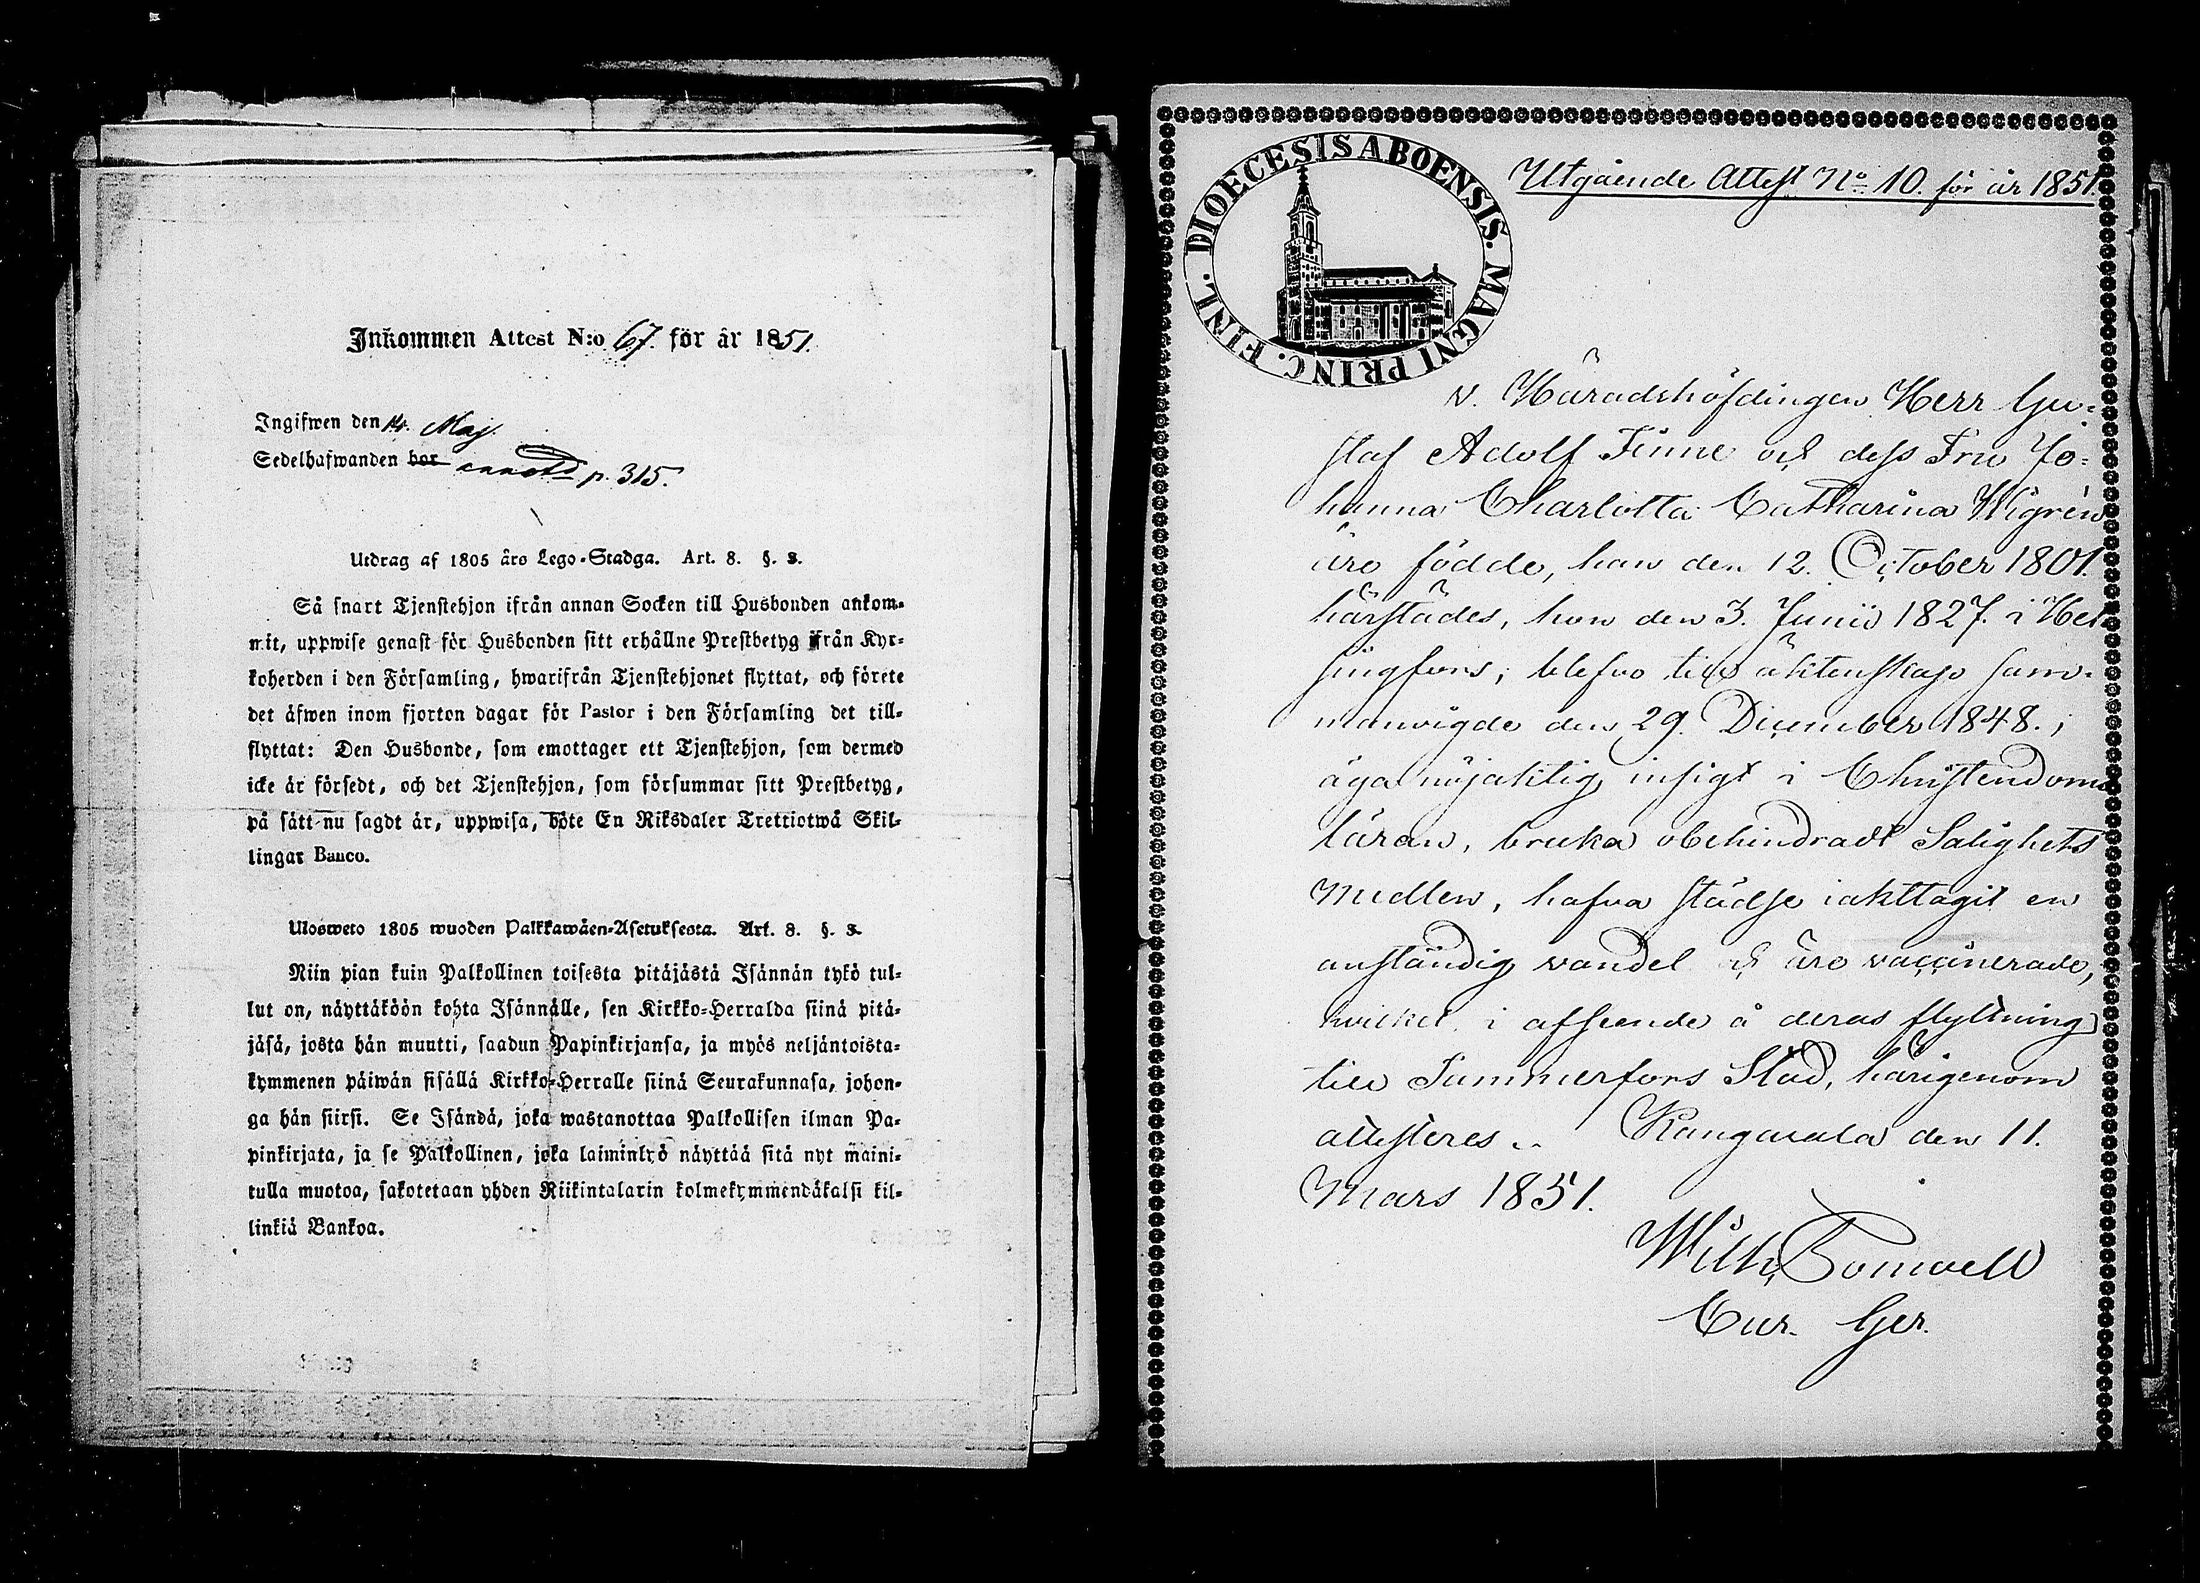 Inkommen Attest N:o 67. för år 1851.
Ingifwen den 14. Maj.
Sedelhafwanden bor p. 315.
Utdrag af 1805 års Lego-Stadga. Art. 8. §. 3.
Så snart Tjenstehjon ifrån annan Socken till Husbonden ankom-
mit, uppwise genast för Husbonden sitt erhållne Prestbetyg ifrån Kyr-
koherden i den Församling, hwarifrån Tjenstehjonet flyttat, och förete
det äfwen inom fjorton dagar för Pastor i den Församling det till-
flyttat: Den Husbonde, som emottager ett Tjenstehjon, som dermed
icke är försedt, och det Tjenstehjon, som försummar sitt Prestbetyg,
på sätt nu sagdt är, uppwisa, böte En Riksdaler Trettiotwå Skil-
lingar Banco.
Ulosweto 1805 wuoden Palkkawäen-Asetuksesta. Art. 8. §. 3.
Niin pian kuin Palkollinen toisesta pitäjästä Isännän tykö tul-
lut on, näyttäköön kohta Isännälle, sen Kirkko-Herralda siinä pitä-
jäsä, josta hän muutti, saadun Papinkirjansa, ja myös neljäntoista-
kymmenen päiwän sisällä Kirkko-Herralle siinä Seurakunnasa, johon-
ga hän siirsi. Se Isändä, joka wastanottaa Palkollisen ilman Pa-
pinkirjata, ja se Palkollinen, joka laiminlyö näyttää sitä nyt maini-
tulla muotoa, sakotetaan yhden Riikintalarin kolmekymmendäkaksi kil-
linkiä Bankoa.
FINL. DIOECESIS ABOENSIS. MAGNI PRINC.
Utgående Attest No. 10. för år 1851.
v. Häradshöfdingen Herr Gu-
staf Adolf Finne och dess Fru Jo-
hanna Charlotta Catharina Wigren
äro födde, han den 12. October 1801.
härstädes, hon den 3. Junii 1827. i Hel
singfors; blefvo till äktenskap sam-
manvigde den 29. December 1848.;
äga nöjaktig insigt i Christendoms
läran, bruka obehindradt Salighets
Medlen, hafva städse iakttagit en
anständig vandel och äro vaccinerade,
hvilket i afseende å deras flyttning
till Tammerfors Stad, härigenom
attesteres. Kangasala den 11.
Mars 1851.
Wilh.
Cur. Ger.